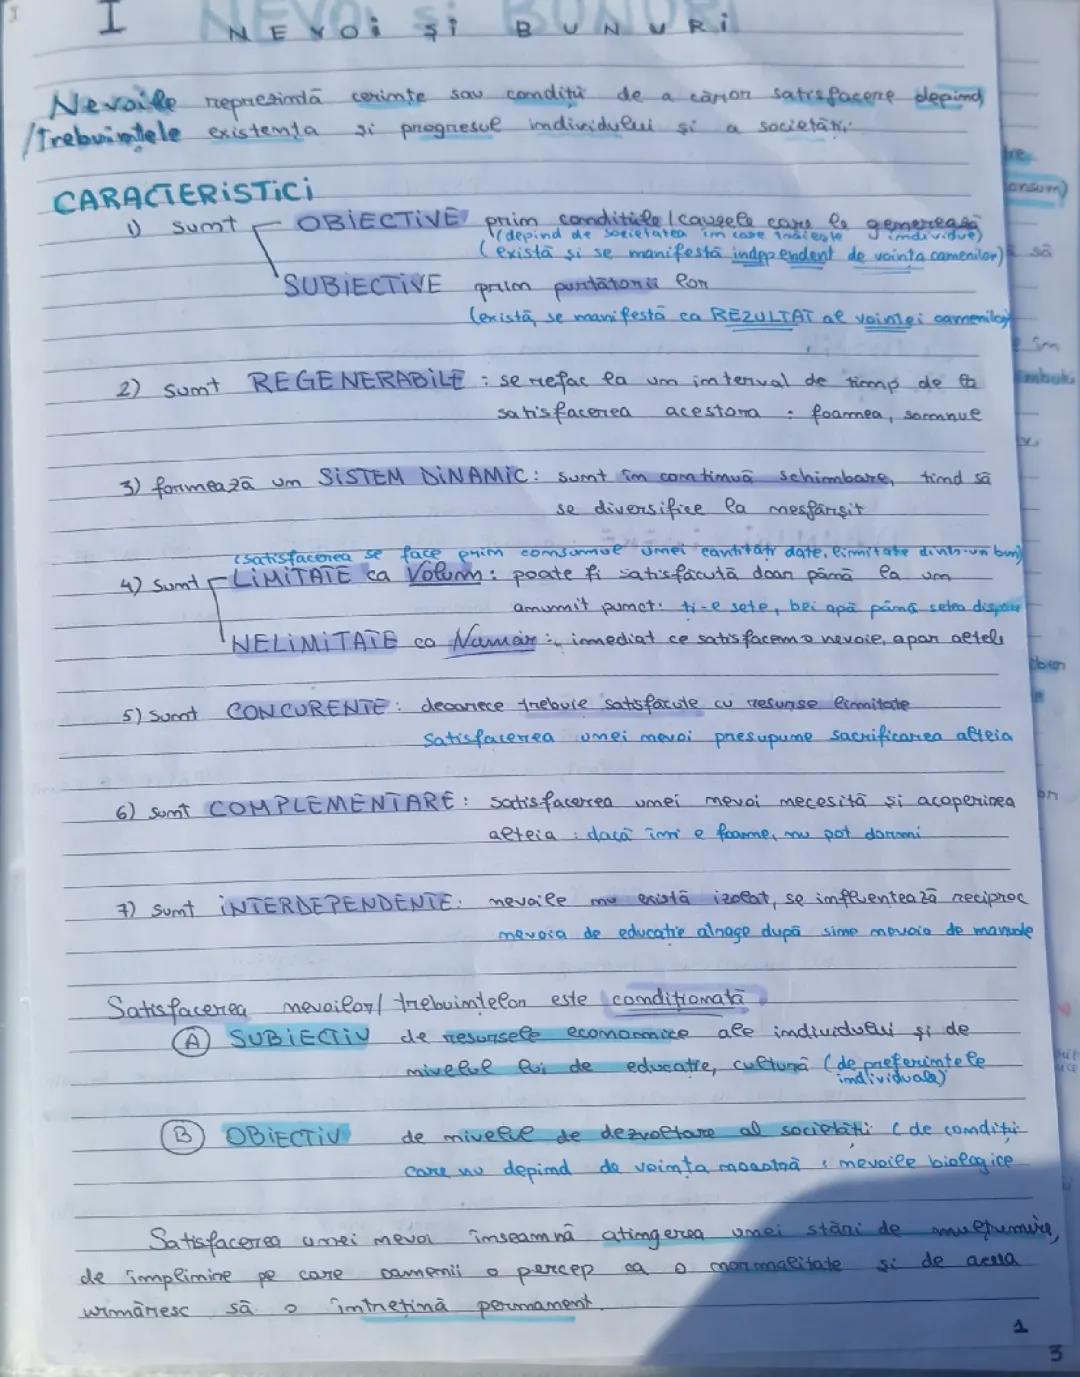 I NEVOI ŞI BUNURI
Nevoile reprezintă cerințe sau condiții de a căror satisfacere depind
/Trebuințele existența și progresul individului și a societății.
CARACTERISTICI
1) sunt OBIECTIVE prin condițiile/cauzele care le generează
(depind de societatea în care trăiește individul)
(există și se manifestă independent de voința oamenilor)
SUBIECTIVE prin purtătorii lor
(există, se manifestă ca REZULTAT al voinței oamenilor)
2) sunt REGENERABILE : se refac la un interval de timp de la
satisfacerea acestora : foamea, somnul
3) formează un SISTEM DINAMIC: sunt în continuă schimbare, tind să
se diversifice la nesfârșit
(satisfacerea se face prin consumul unei cantități date, limitate dintr-un bun)
4) sunt LIMITATE ca Volum: poate fi satisfăcută doar până la un
anumit punct: ți-e sete, bei apă până setea dispare
NELIMITATE ca Număr: imediat ce satisfacem o nevoie, apar altele
5) sunt CONCURENTE: deoarece trebuie satisfăcute cu resurse limitate
satisfacerea unei nevoi presupune sacrificarea alteia
6) sunt COMPLEMENTARE: satisfacerea unei nevoi necesită și acoperirea
alteia : dacă îmi e foame, nu pot dormi
7) sunt INTERDEPENDENTE: nevoile nu există izolat, se influentează reciproc
nevoia de educație atrage după sine nevoia de manuale
Satisfacerea nevoilor/trebuințelor este condiționată
A SUBIECTIV de resursele economice ale individului și de
nivelul lui de educație, cultură (de preferințele
individuale)
B OBIECTIV de nivelul de dezvoltare al societății (de condiții
care nu depind de voința noastră : nevoile biologice
Satisfacerea unei nevoi înseamnă atingerea unei stări de mulțumire,
de împlinire pe care oamenii o percep ca o normalitate și de aceea
urmăresc să o întrețină permanent.
1
3